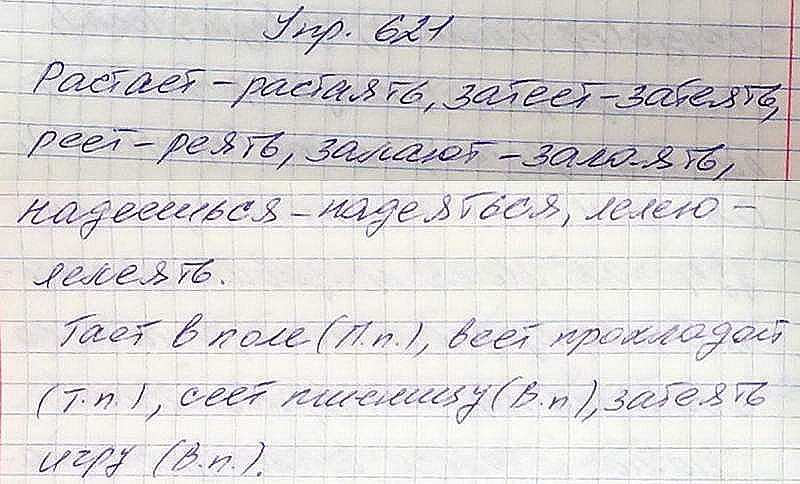 Упр. 621
Растает - растаять, затеет - затеять,
реет - реять, залают - залаять,
надеешься - надеяться, лелею -
лелеять.
Тает в поле (П.п.), веет прохладой
(Т.п.), сеет пшеницу (В.п), затеять
игру (В.п.).